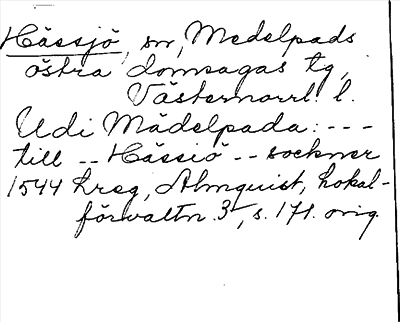 Hässjö, sn, Medelpads
östra domsagas tg,
Västernorrl. l.
Udi Mädelpada: - - -
till - - Hässiö - - sockner
1544 hreg, Almquist, Lokal-
förvaltn. 3, s. 171. orig.